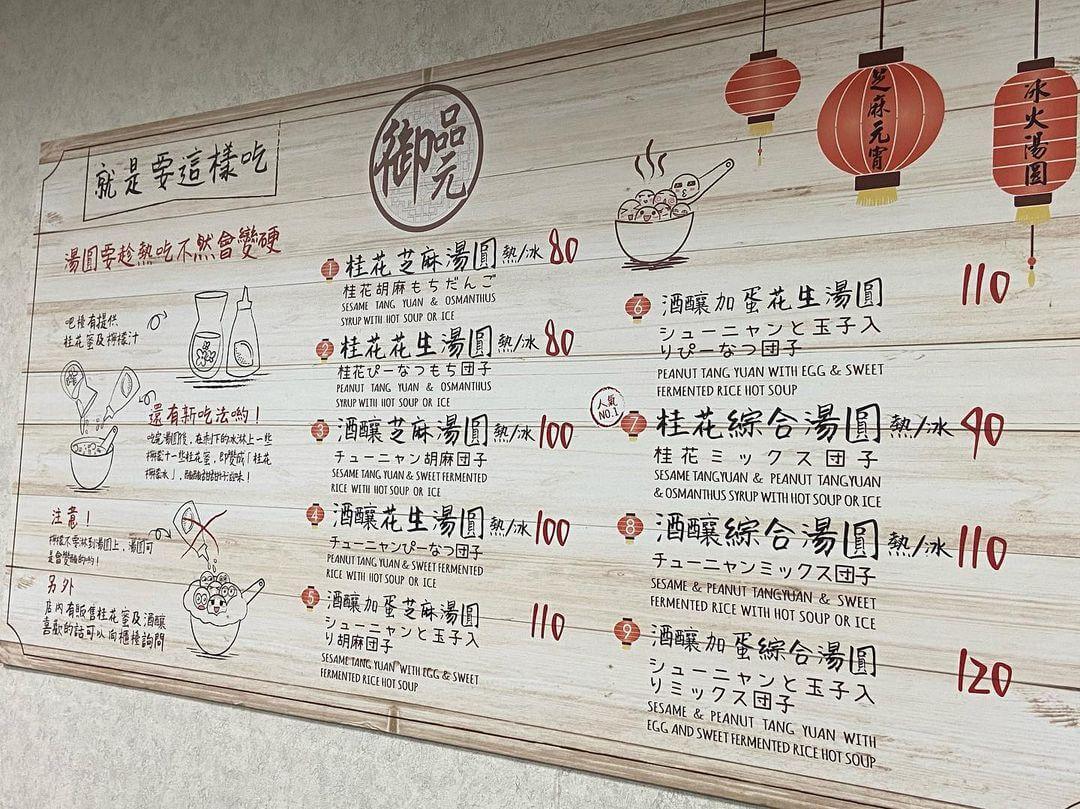 就是要這樣吃
湯圓要趁熱吃不然會變硬
吧檯有提供
桂花蜜及檸檬汁
還有新吃法喲！
吃完湯圓後，在剩下的冰淋上一些
檸檬汁一些桂花蜜，即變成「桂花
檸檬冰」，酸酸甜甜好滋味！
注意！
檸檬不要淋到湯圓上，湯圓可
是會變酸的喲！
另外
店內有販售桂花蜜及酒釀
喜歡的話可以向櫃檯詢問
御品元
1 桂花芝麻湯圓 熱/冰 80
桂花胡麻もちだんご
SESAME TANG YUAN & OSMANTHUS
SYRUP WITH HOT SOUP OR ICE
2 桂花花生湯圓 熱/冰 80
桂花ぴーなつもち団子
PEANUT TANG YUAN & OSMANTHUS
SYRUP WITH HOT SOUP OR ICE
3 酒釀芝麻湯圓 熱/冰 100
チューニャン胡麻団子
SESAME TANG YUAN & SWEET FERMENTED
RICE WITH HOT SOUP OR ICE
4 酒釀花生湯圓 熱/冰 100
チューニャンぴーなつ団子
PEANUT TANG YUAN & SWEET FERMENTED
RICE WITH HOT SOUP OR ICE
5 酒釀加蛋芝麻湯圓 110
シューニャンと玉子入
り胡麻団子
SESAME TANG YUAN WITH EGG & SWEET
FERMENTED RICE HOT SOUP
芝麻元宵
冰火湯圓
6 酒釀加蛋花生湯圓 110
シューニャンと玉子入
りぴーなつ団子
PEANUT TANG YUAN WITH EGG & SWEET
FERMENTED RICE HOT SOUP
人氣
NO.1
7 桂花綜合湯圓 熱/冰 90
桂花ミックス団子
SESAME TANGYUAN & PEANUT TANGYUAN
& OSMANTHUS SYRUP WITH HOT SOUP OR ICE
8 酒釀綜合湯圓 熱/冰 110
チューニャンミックス団子
SESAME & PEANUT TANGYUAN & SWEET
FERMENTED RICE WITH HOT SOUP OR ICE
9 酒釀加蛋綜合湯圓 120
シューニャンと玉子入
りミックス団子
SESAME & PEANUT TANG YUAN WITH
EGG AND SWEET FERMENTED RICE HOT SOUP